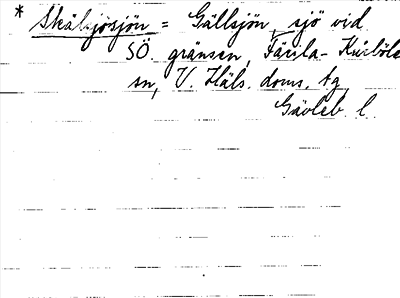 * Skålsjösjön = Gällsjön, sjö vid
SÖ. gränsen, Färila-Kårböle
sn, V. Häls. doms. tg
Gävleb. l.